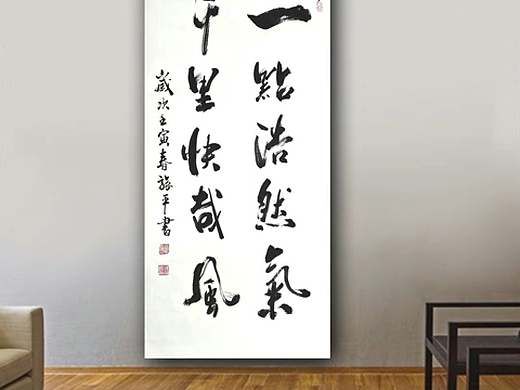 一點浩然氣
千里快哉風
歲次壬寅春旅平書